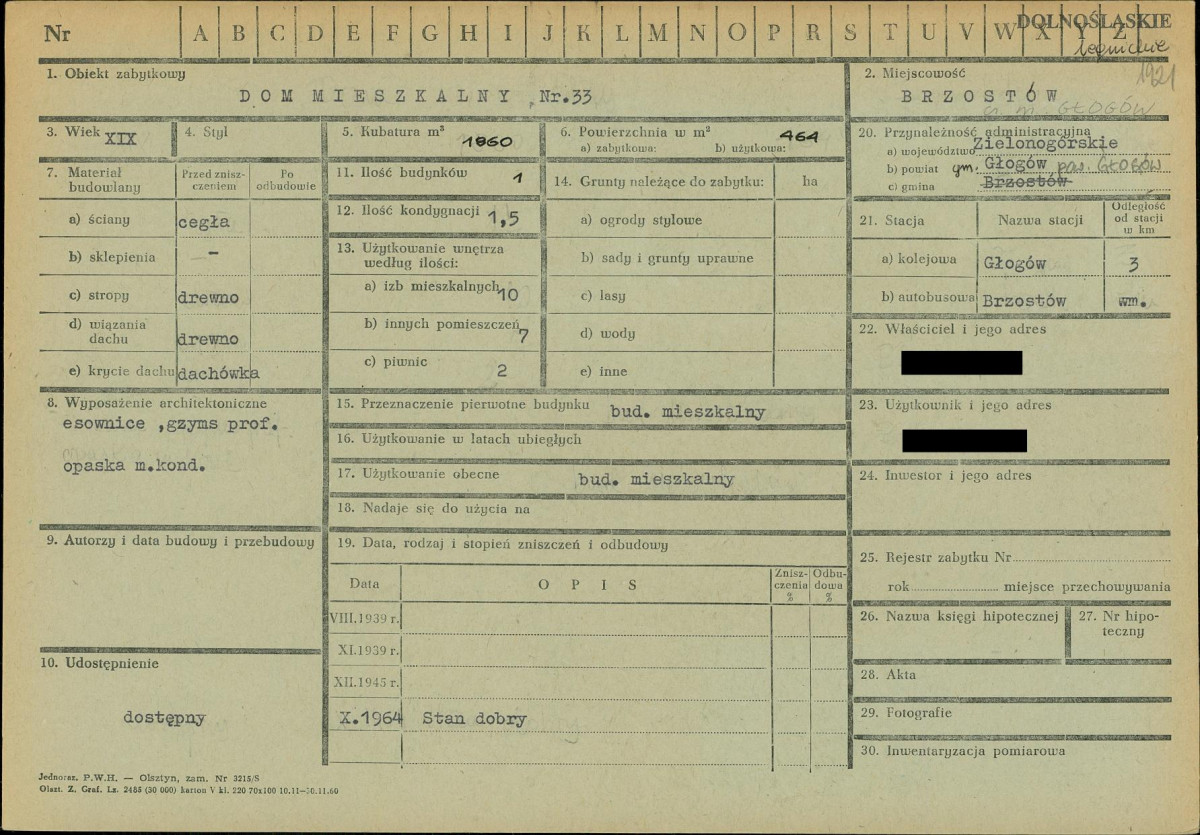 Nr A B C D E F G H I J K L M N O P R S T U V W X Y Z
DOLNOŚLĄSKIE
legnickie
1921
1. Obiekt zabytkowy
DOM MIESZKALNY Nr.33
2. Miejscowość
BRZOSTÓW
GŁOGÓW
3. Wiek XIX
4. Styl
5. Kubatura m³ 1860
6. Powierzchnia w m² 464
a) zabytkowa: b) użytkowa:
7. Materiał budowlany
Przed znisz-
czeniem
Po
odbudowie
a) ściany cegła
b) sklepienia –
c) stropy drewno
d) wiązania
dachu drewno
e) krycie dachu dachówka
8. Wyposażenie architektoniczne
esownice ,gzyms prof.
opaska m.kond.
9. Autorzy i data budowy i przebudowy
10. Udostępnienie
dostępny
11. Ilość budynków 1
12. Ilość kondygnacji 1,5
13. Użytkowanie wnętrza
według ilości:
a) izb mieszkalnych 10
b) innych pomieszczeń 7
c) piwnic 2
14. Grunty należące do zabytku: ha
a) ogrody stylowe
b) sady i grunty uprawne
c) lasy
d) wody
e) inne
15. Przeznaczenie pierwotne budynku bud. mieszkalny
16. Użytkowanie w latach ubiegłych
17. Użytkowanie obecne bud. mieszkalny
18. Nadaje się do użycia na
19. Data, rodzaj i stopień zniszczeń i odbudowy
Data OPIS
Znisz-
czenia
%
Odbu-
dowa
%
VIII.1939 r.
XI.1939 r.
XII.1945 r.
X.1964 Stan dobry
20. Przynależność administracyjna
a) województwo Zielonogórskie
b) powiat gm. Głogów pow. GŁOGÓW
c) gmina Brzostów
21. Stacja Nazwa stacji
Odległość
od stacji
w km
a) kolejowa Głogów 3
b) autobusowa Brzostów wm.
22. Właściciel i jego adres
23. Użytkownik i jego adres
24. Inwestor i jego adres
25. Rejestr zabytku Nr
rok miejsce przechowywania
26. Nazwa księgi hipotecznej
27. Nr hipo-
teczny
28. Akta
29. Fotografie
30. Inwentaryzacja pomiarowa
Jednoraz. P.W.H. — Olsztyn, zam. Nr 3215/S
Olszt. Z. Graf. Lz. 2485 (30 000) karton V kl. 220 70x100 10.11—30.11.60